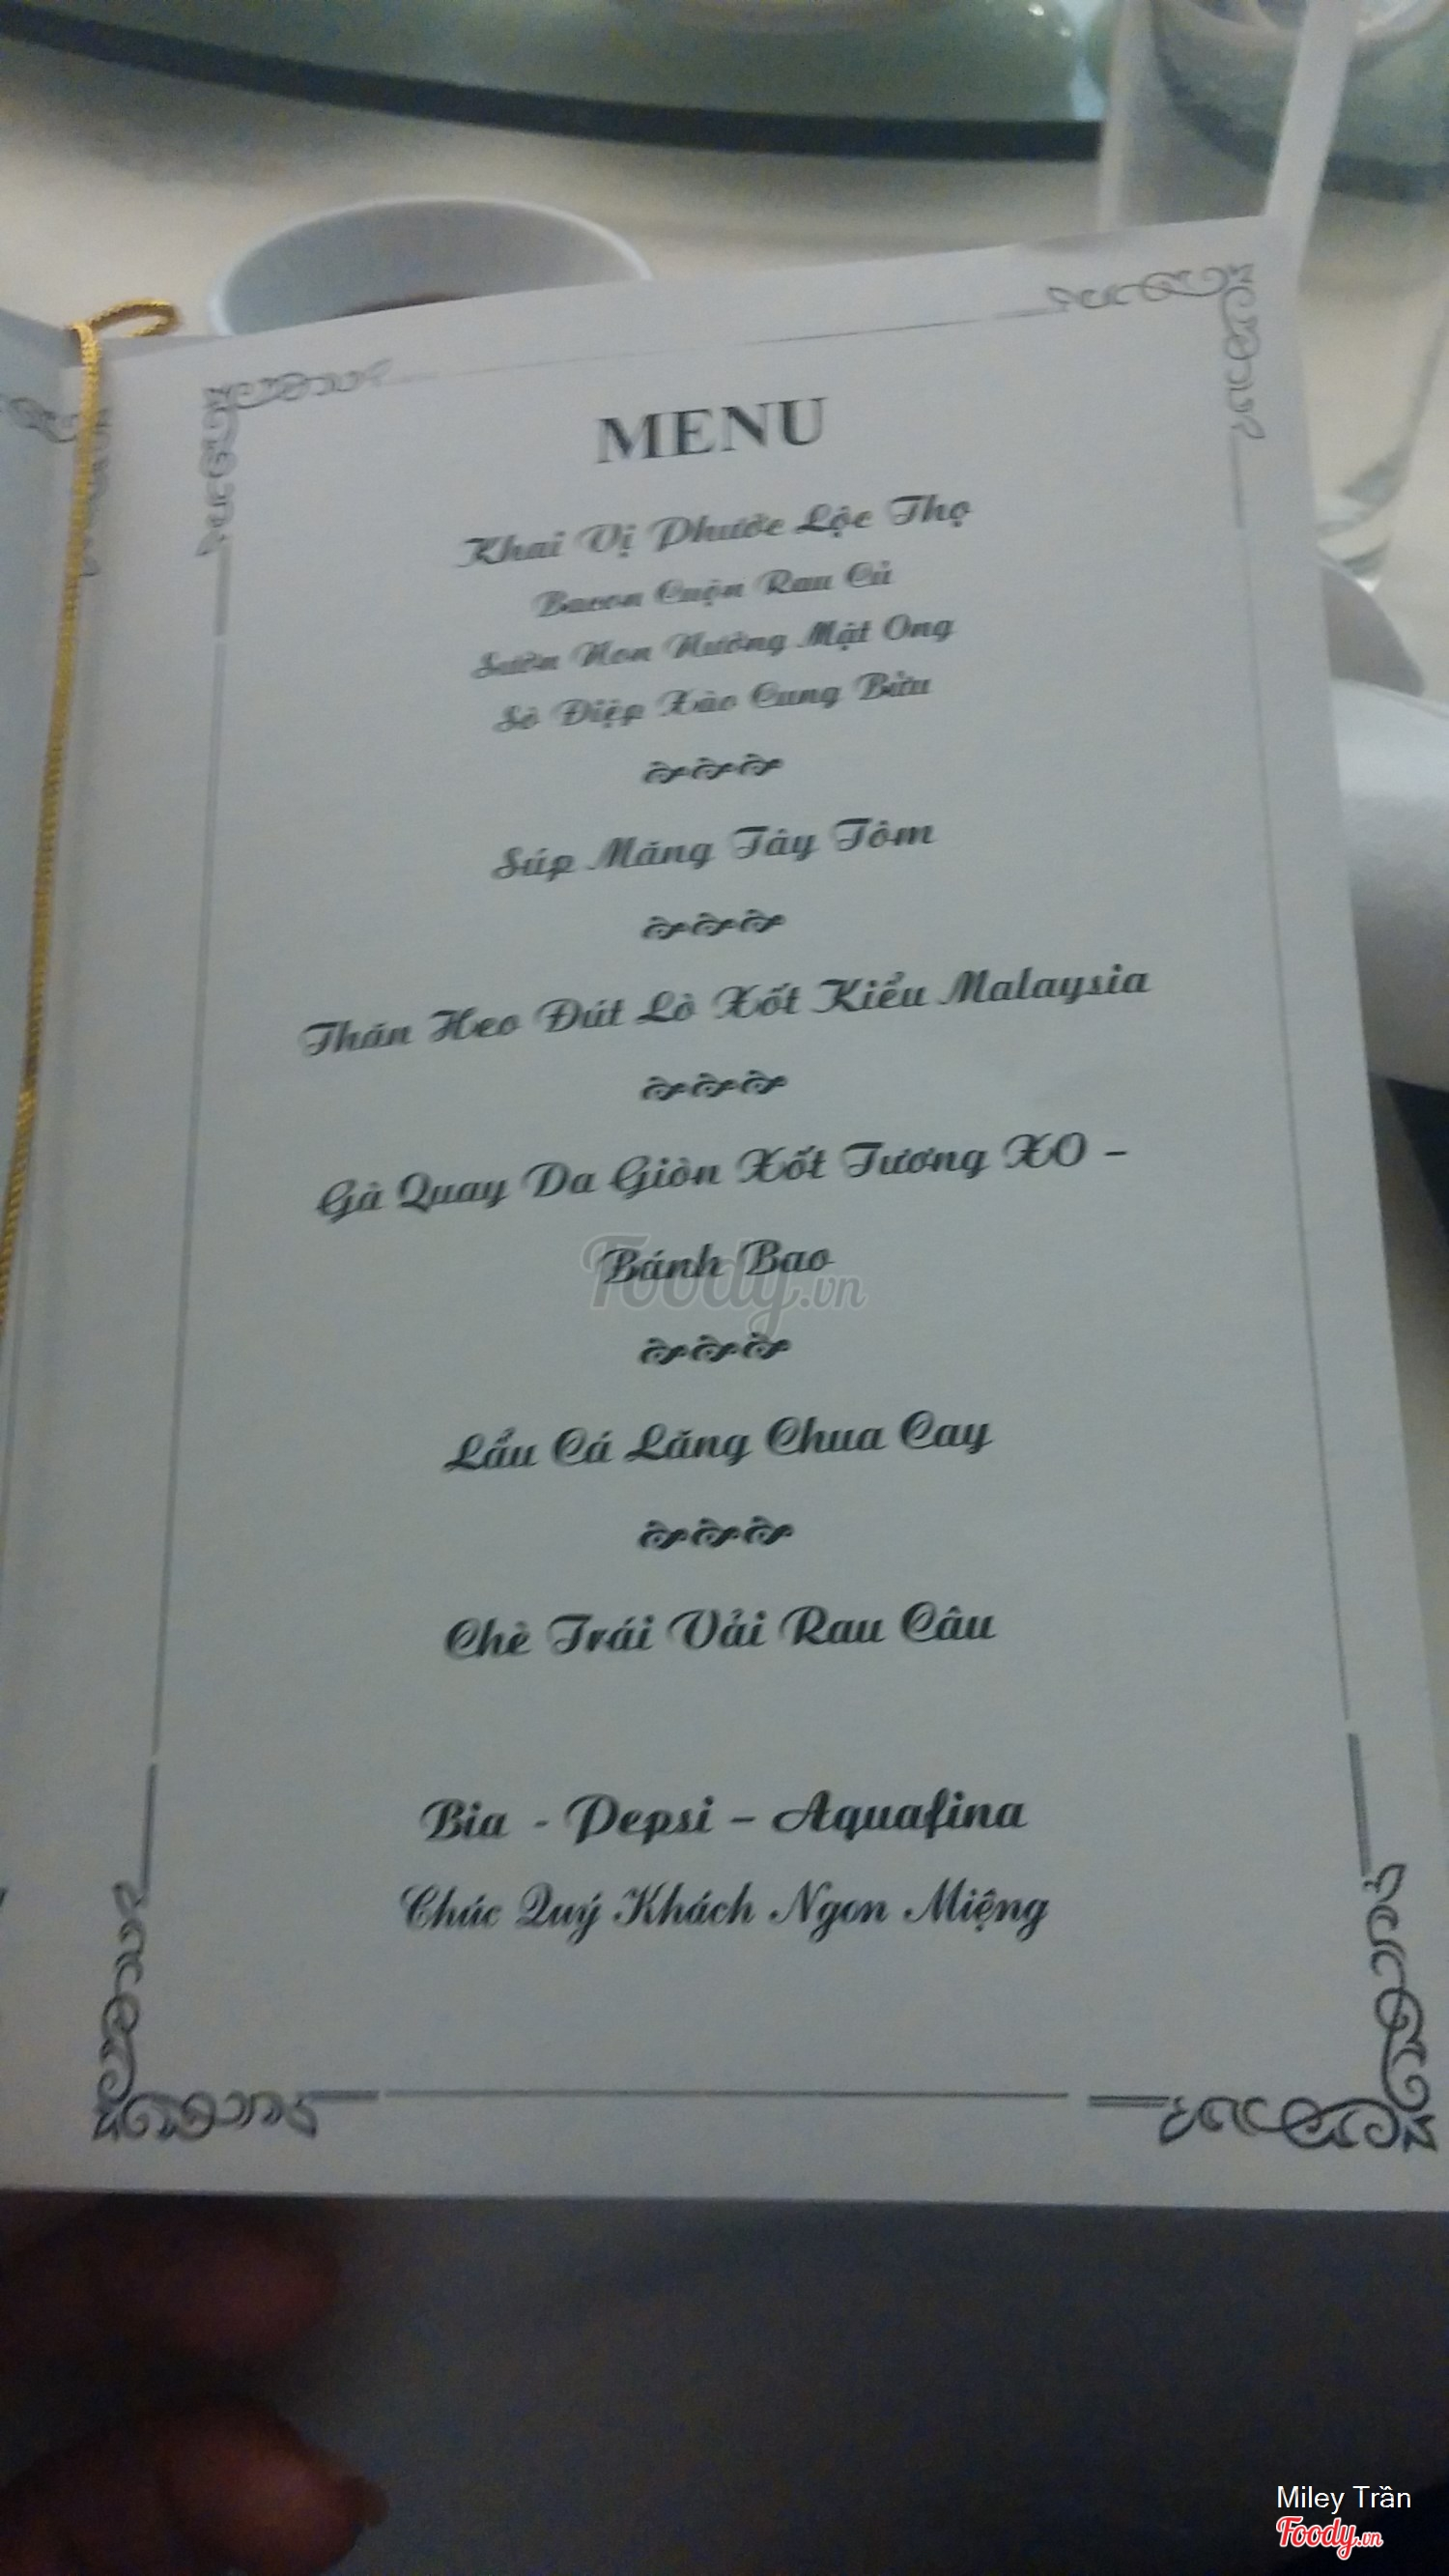 MENU
Khai Vị Phước Lộc Thọ
Bacon Cuộn Rau Củ
Sườn Non Nướng Mật Ong
Sò Điệp Xào Cung Bửu
Súp Măng Tây Tôm
Thăn Heo Đút Lò Xốt Kiểu Malaysia
Gà Quay Da Giòn Xốt Tương XO –
Bánh Bao
Foody.vn
Lẩu Cá Lăng Chua Cay
Chè Trái Vải Rau Câu
Bia - Pepsi – Aquafina
Chúc Quý Khách Ngon Miệng
Miley Trần
Foody.vn